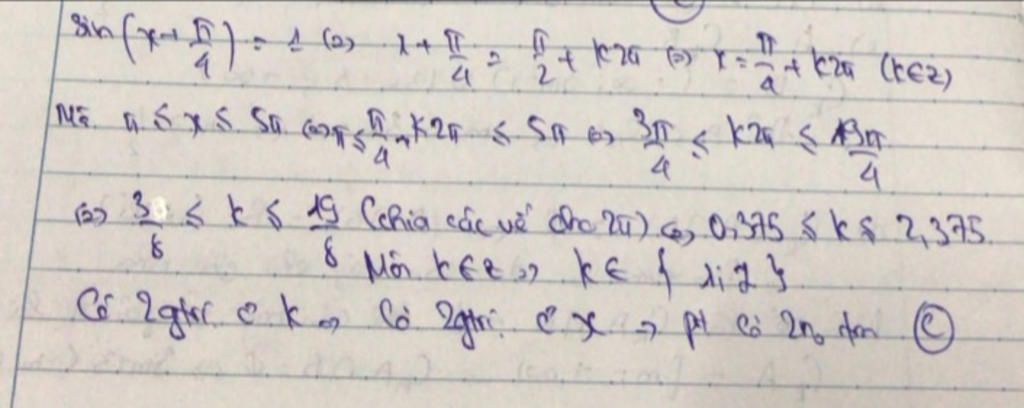 sin(x+π/4) = 1 <=> x + π/4 = π/2 + k2π <=> x = π/4 + k2π (k∈Z)
Mà π ≤ x ≤ 5π <=> π ≤ π/4 + k2π ≤ 5π <=> 3π/4 ≤ k2π ≤ 19π/4
<=> 3/8 ≤ k ≤ 19/8 (chia các vế cho 2π) <=> 0,375 ≤ k ≤ 2,375
Mà k∈Z => k ∈ {1;2}
Có 2 gtrị c k => Có 2 gtrị c x => pt có 2 no (C)